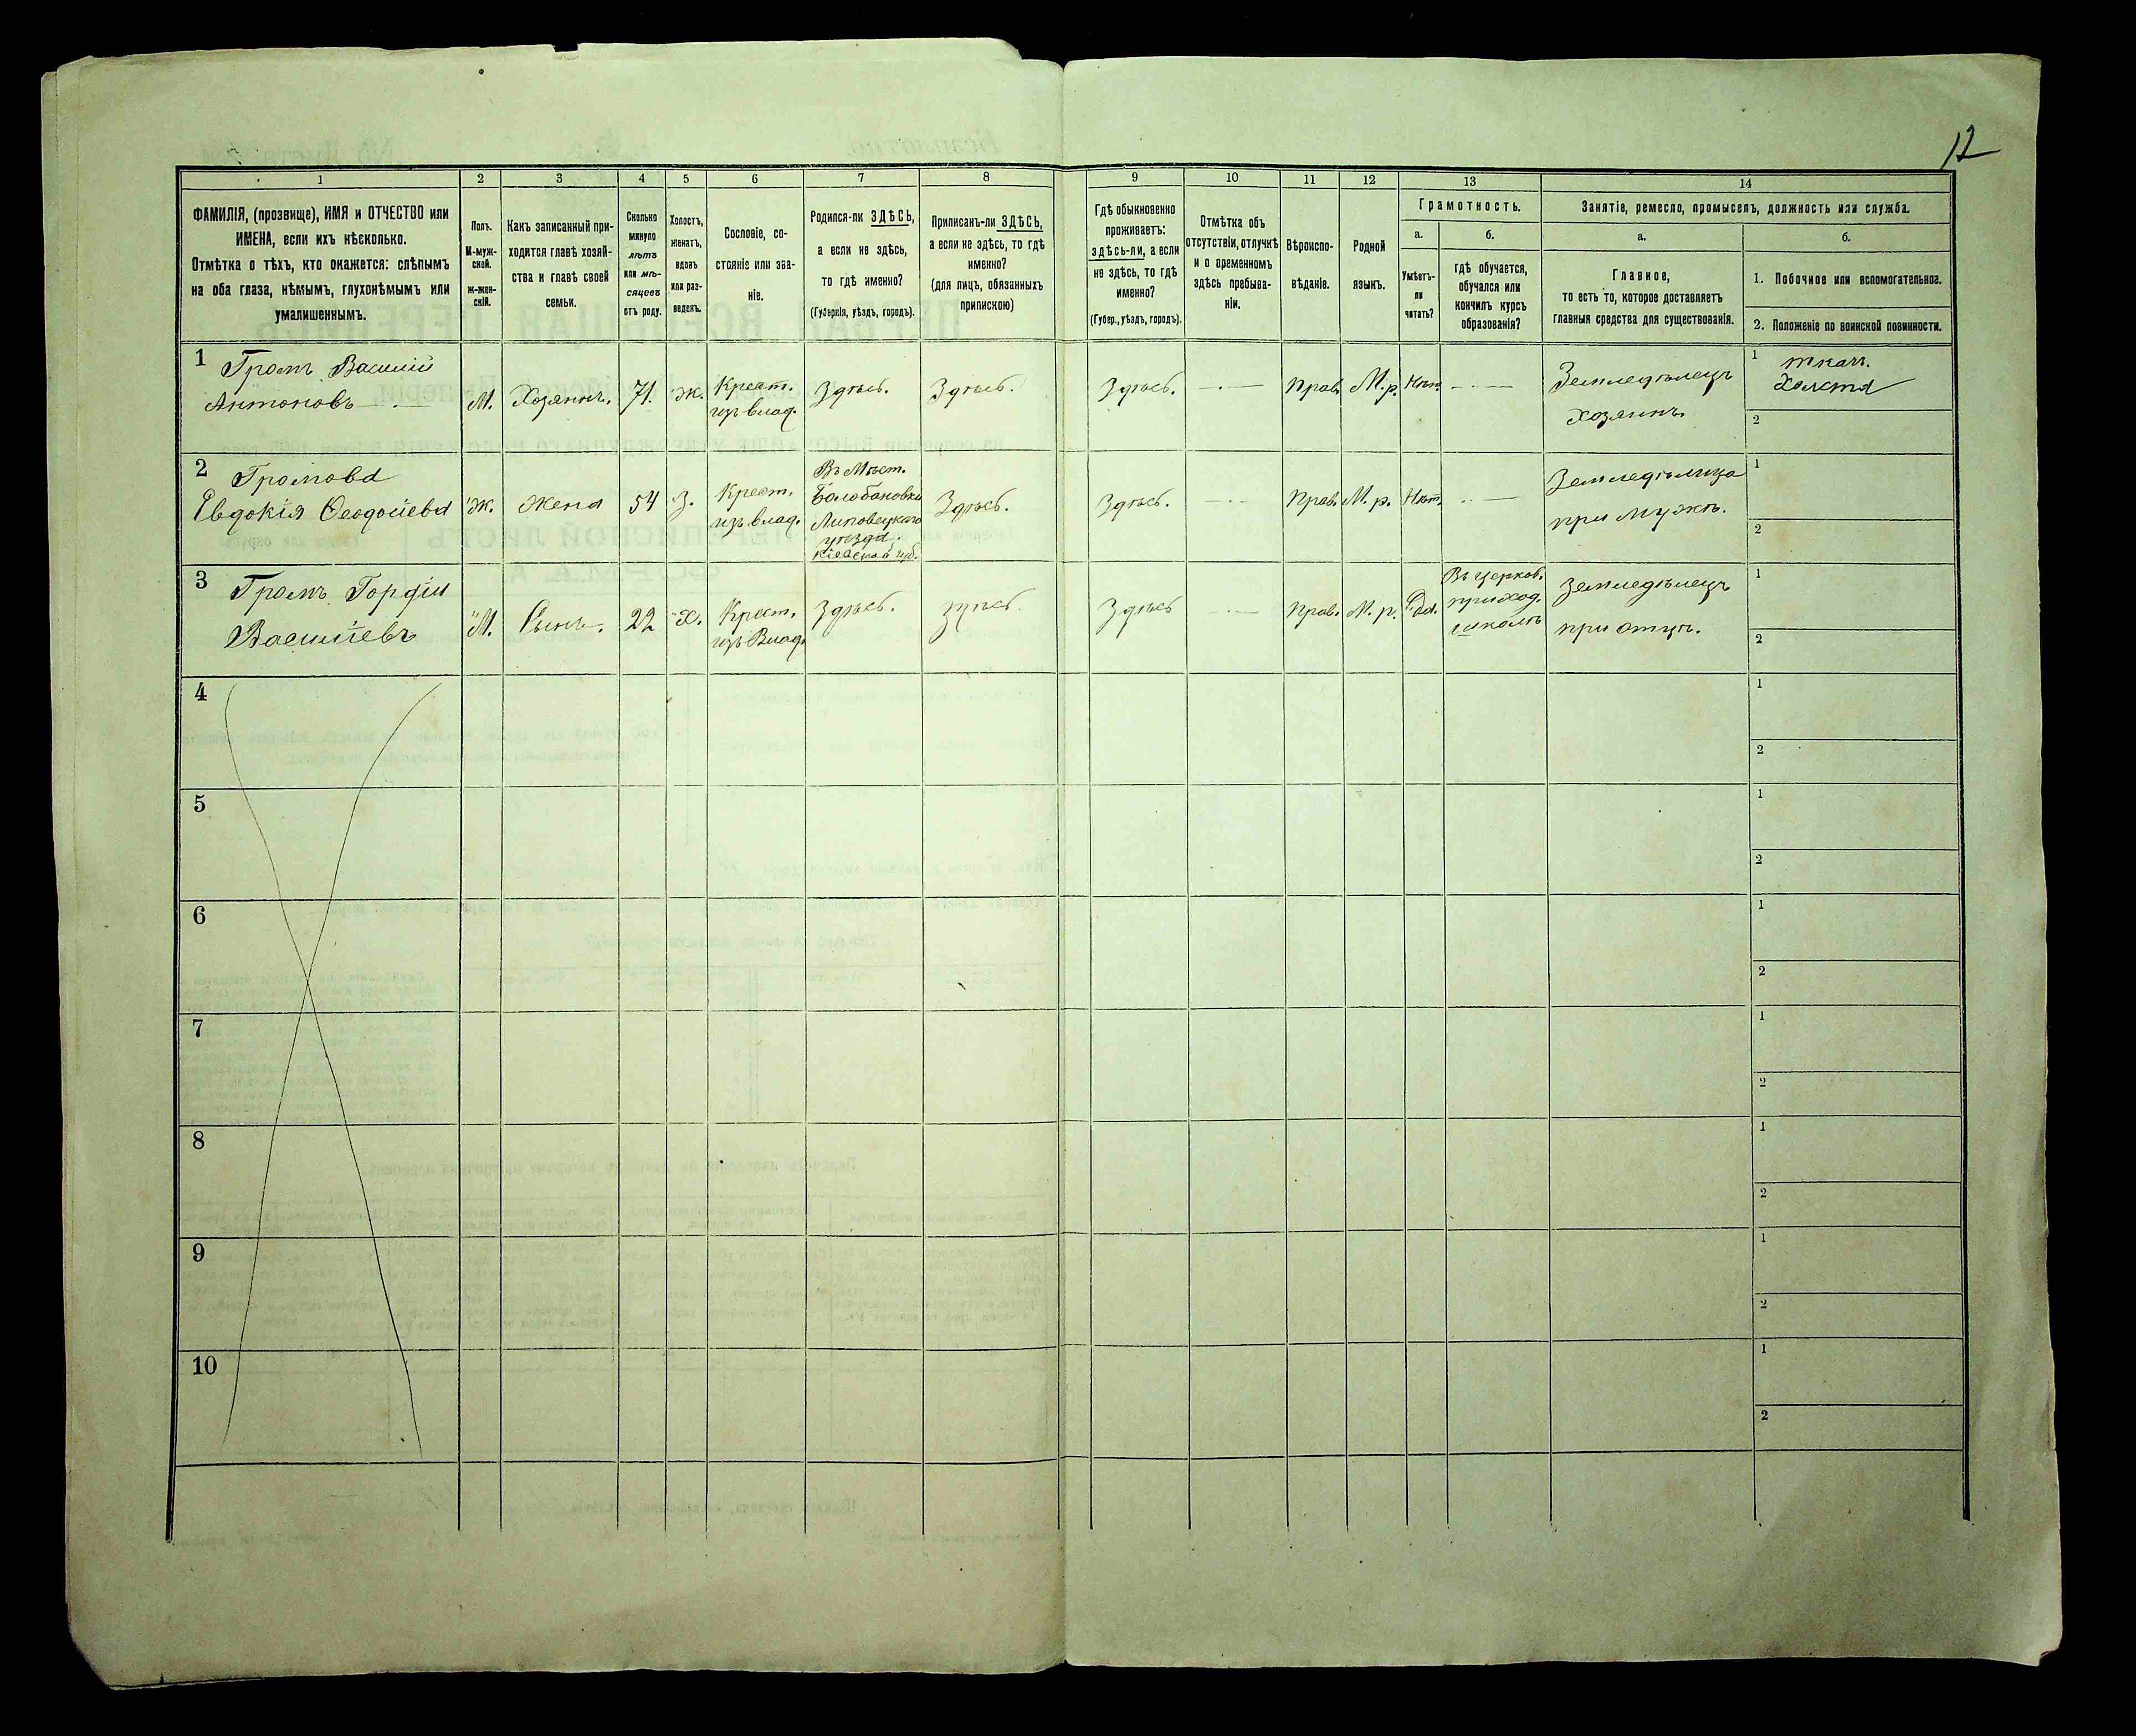 12
1
2
3
4
5
6
7
8
9
10
11
12
13
14
ФАМИЛІЯ, (прозвище), ИМЯ и ОТЧЕСТВО или
ИМЕНА, если ихъ нѣсколько.
Отмѣтка о тѣхъ, кто окажется: слѣпымъ
на оба глаза, нѣмымъ, глухонѣмымъ или
умалишеннымъ.
Полъ.
М-муж-
ской.
ж-жен-
скій.
Какъ записанный при-
ходится главѣ хозяй-
ства и главѣ своей
семьи.
Сколько
минуло
лѣтъ
или мѣ-
сяцевъ
отъ роду.
Холостъ,
женатъ,
вдовъ
или раз-
веденъ.
Сословіе, со-
стояніе или зва-
ніе.
Родился-ли ЗДѢСЬ,
а если не здѣсь,
то гдѣ именно?
(Губернія, уѣздъ, городъ).
Приписанъ-ли ЗДѢСЬ,
а если не здѣсь, то гдѣ
именно?
(для лицъ, обязанныхъ
припискою)
Гдѣ обыкновенно
проживаетъ:
здѣсь-ли, а если
не здѣсь, то гдѣ
именно?
(Губер., уѣздъ, городъ).
Отмѣтка объ
отсутствіи, отлучкѣ
и о временномъ
здѣсь пребыва-
ніи.
Вѣроиспо-
вѣданіе.
Родной
языкъ.
Грамотность.
а.
Умѣетъ-
ли
читать?
б.
гдѣ обучается,
обучался или
кончилъ курсъ
образованія?
Занятіе, ремесло, промыселъ, должность или служба.
а.
Главное,
то есть то, которое доставляетъ
главныя средства для существованія.
б.
1. Побочное или вспомогательное.
2. Положеніе по воинской повинности.
1
Громъ Василій
Антоновъ
М.
Хозяинъ.
71.
Ж.
Крест.
изъ влад.
Здѣсь.
Здѣсь.
Здѣсь.
Прав.
М.р.
Нѣт.
Земледѣлецъ
хозяинъ.
1
ткач.
Холста
2
2
Громова
Евдокія Феодосіева
Ж.
Жена
54
З.
Крест.
изъ влад.
Въ Мѣст.
Балобановки
Липовецкаго
уѣзда.
Кіевской губ.
Здѣсь.
Здѣсь.
Прав.
М. р.
Нѣт.
Земледѣлица
при мужѣ.
1
2
3
Громъ Гордій
Василіевъ
М.
Сынъ.
22
Х.
Крест.
изъ Влад.
Здѣсь.
Здѣсь.
Здѣсь
Прав.
М. р.
Да.
Въ церков.
приход.
школѣ
Земледѣлецъ
при отцѣ.
1
2
4
1
2
5
1
2
6
1
2
7
1
2
8
1
2
9
1
2
10
1
2